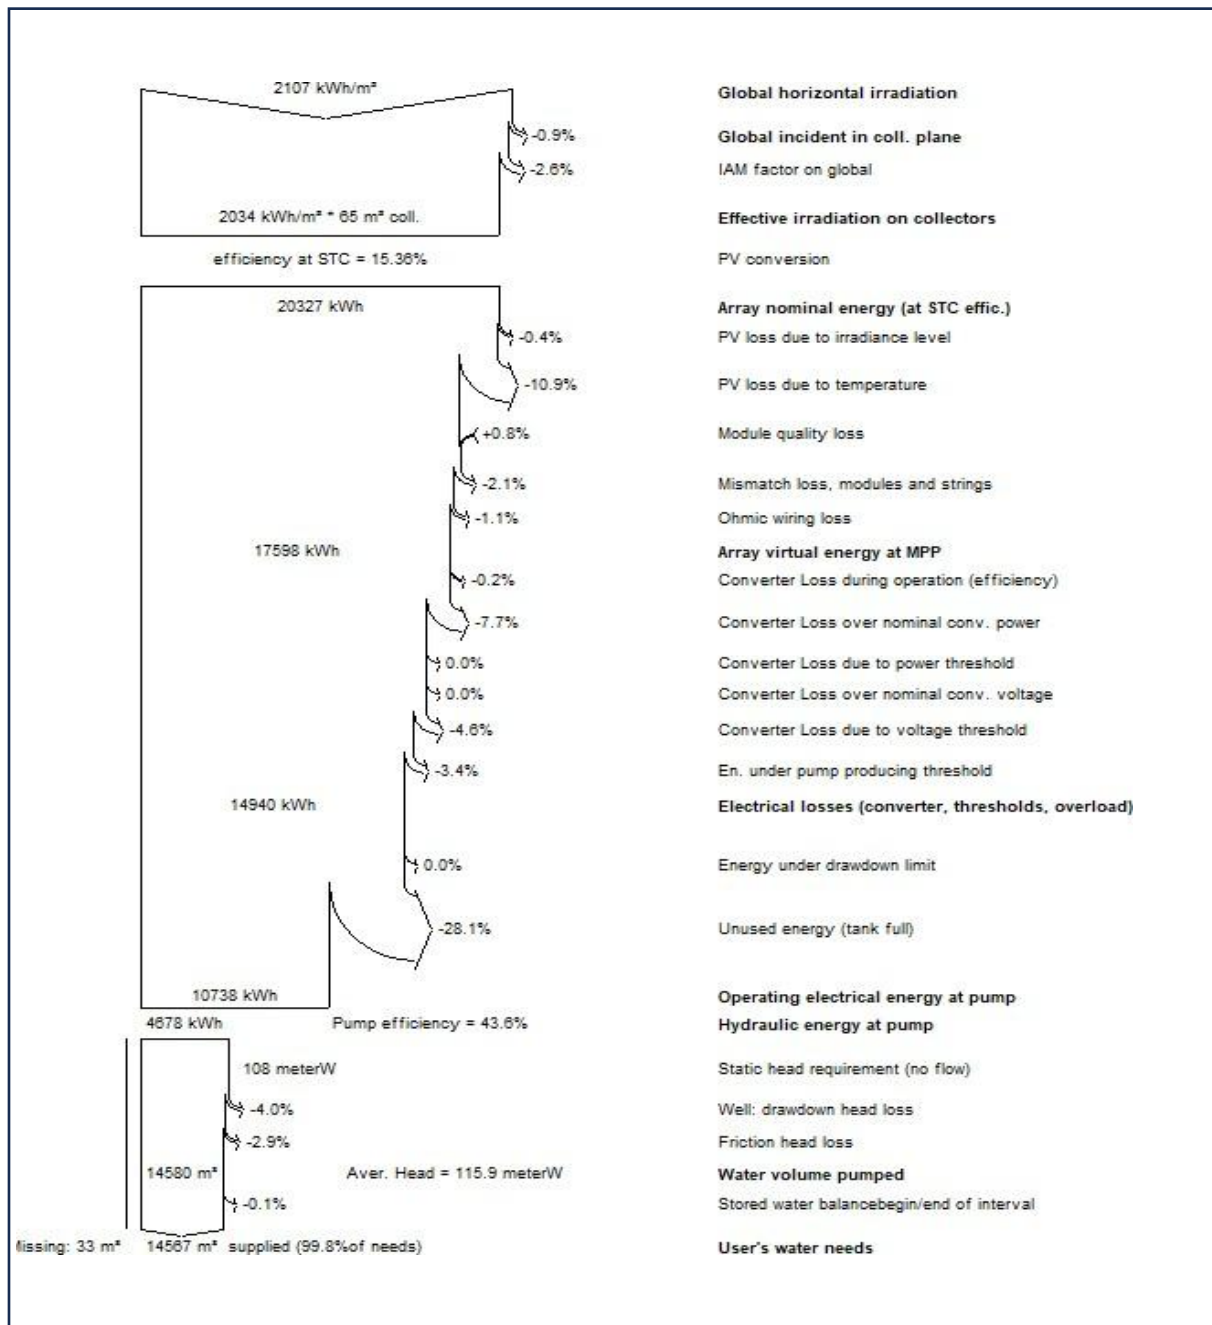 2107 kWh/m² Global horizontal irradiation
-0.9% Global incident in coll. plane
-2.6% IAM factor on global
2034 kWh/m² * 65 m² coll. Effective irradiation on collectors
efficiency at STC = 15.36% PV conversion
20327 kWh Array nominal energy (at STC effic.)
-0.4% PV loss due to irradiance level
-10.9% PV loss due to temperature
+0.8% Module quality loss
-2.1% Mismatch loss, modules and strings
-1.1% Ohmic wiring loss
17598 kWh Array virtual energy at MPP
-0.2% Converter Loss during operation (efficiency)
-7.7% Converter Loss over nominal conv. power
0.0% Converter Loss due to power threshold
0.0% Converter Loss over nominal conv. voltage
-4.6% Converter Loss due to voltage threshold
-3.4% En. under pump producing threshold
14940 kWh Electrical losses (converter, thresholds, overload)
0.0% Energy under drawdown limit
-28.1% Unused energy (tank full)
10738 kWh Operating electrical energy at pump
4678 kWh Pump efficiency = 43.6% Hydraulic energy at pump
108 meterW Static head requirement (no flow)
-4.0% Well: drawdown head loss
-2.9% Friction head loss
14580 m³ Aver. Head = 115.9 meterW Water volume pumped
-0.1% Stored water balancebegin/end of interval
issing: 33 m³ 14567 m³ supplied (99.8%of needs) User's water needs